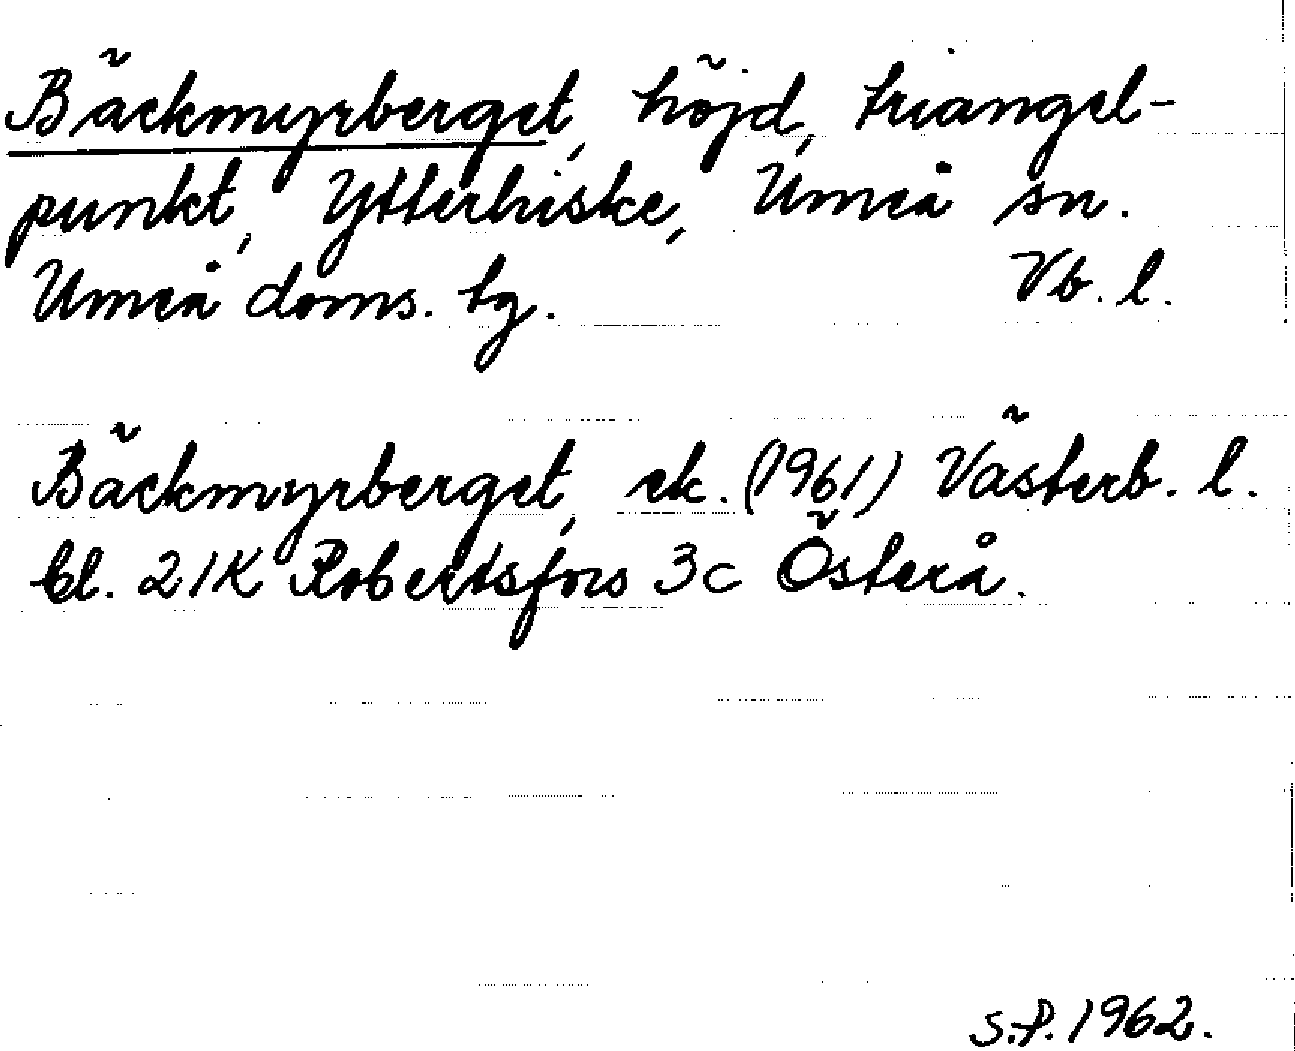 Bäckmyrberget, höjd, triangel-
punkt, Ytterhiske, Umeå sn.
Umeå doms. tg. Vb. l.
Bäckmyrberget, ek. (1961) Västerb. l.
bl. 21K Robertsfors 3c Österå.
S.P. 1962.